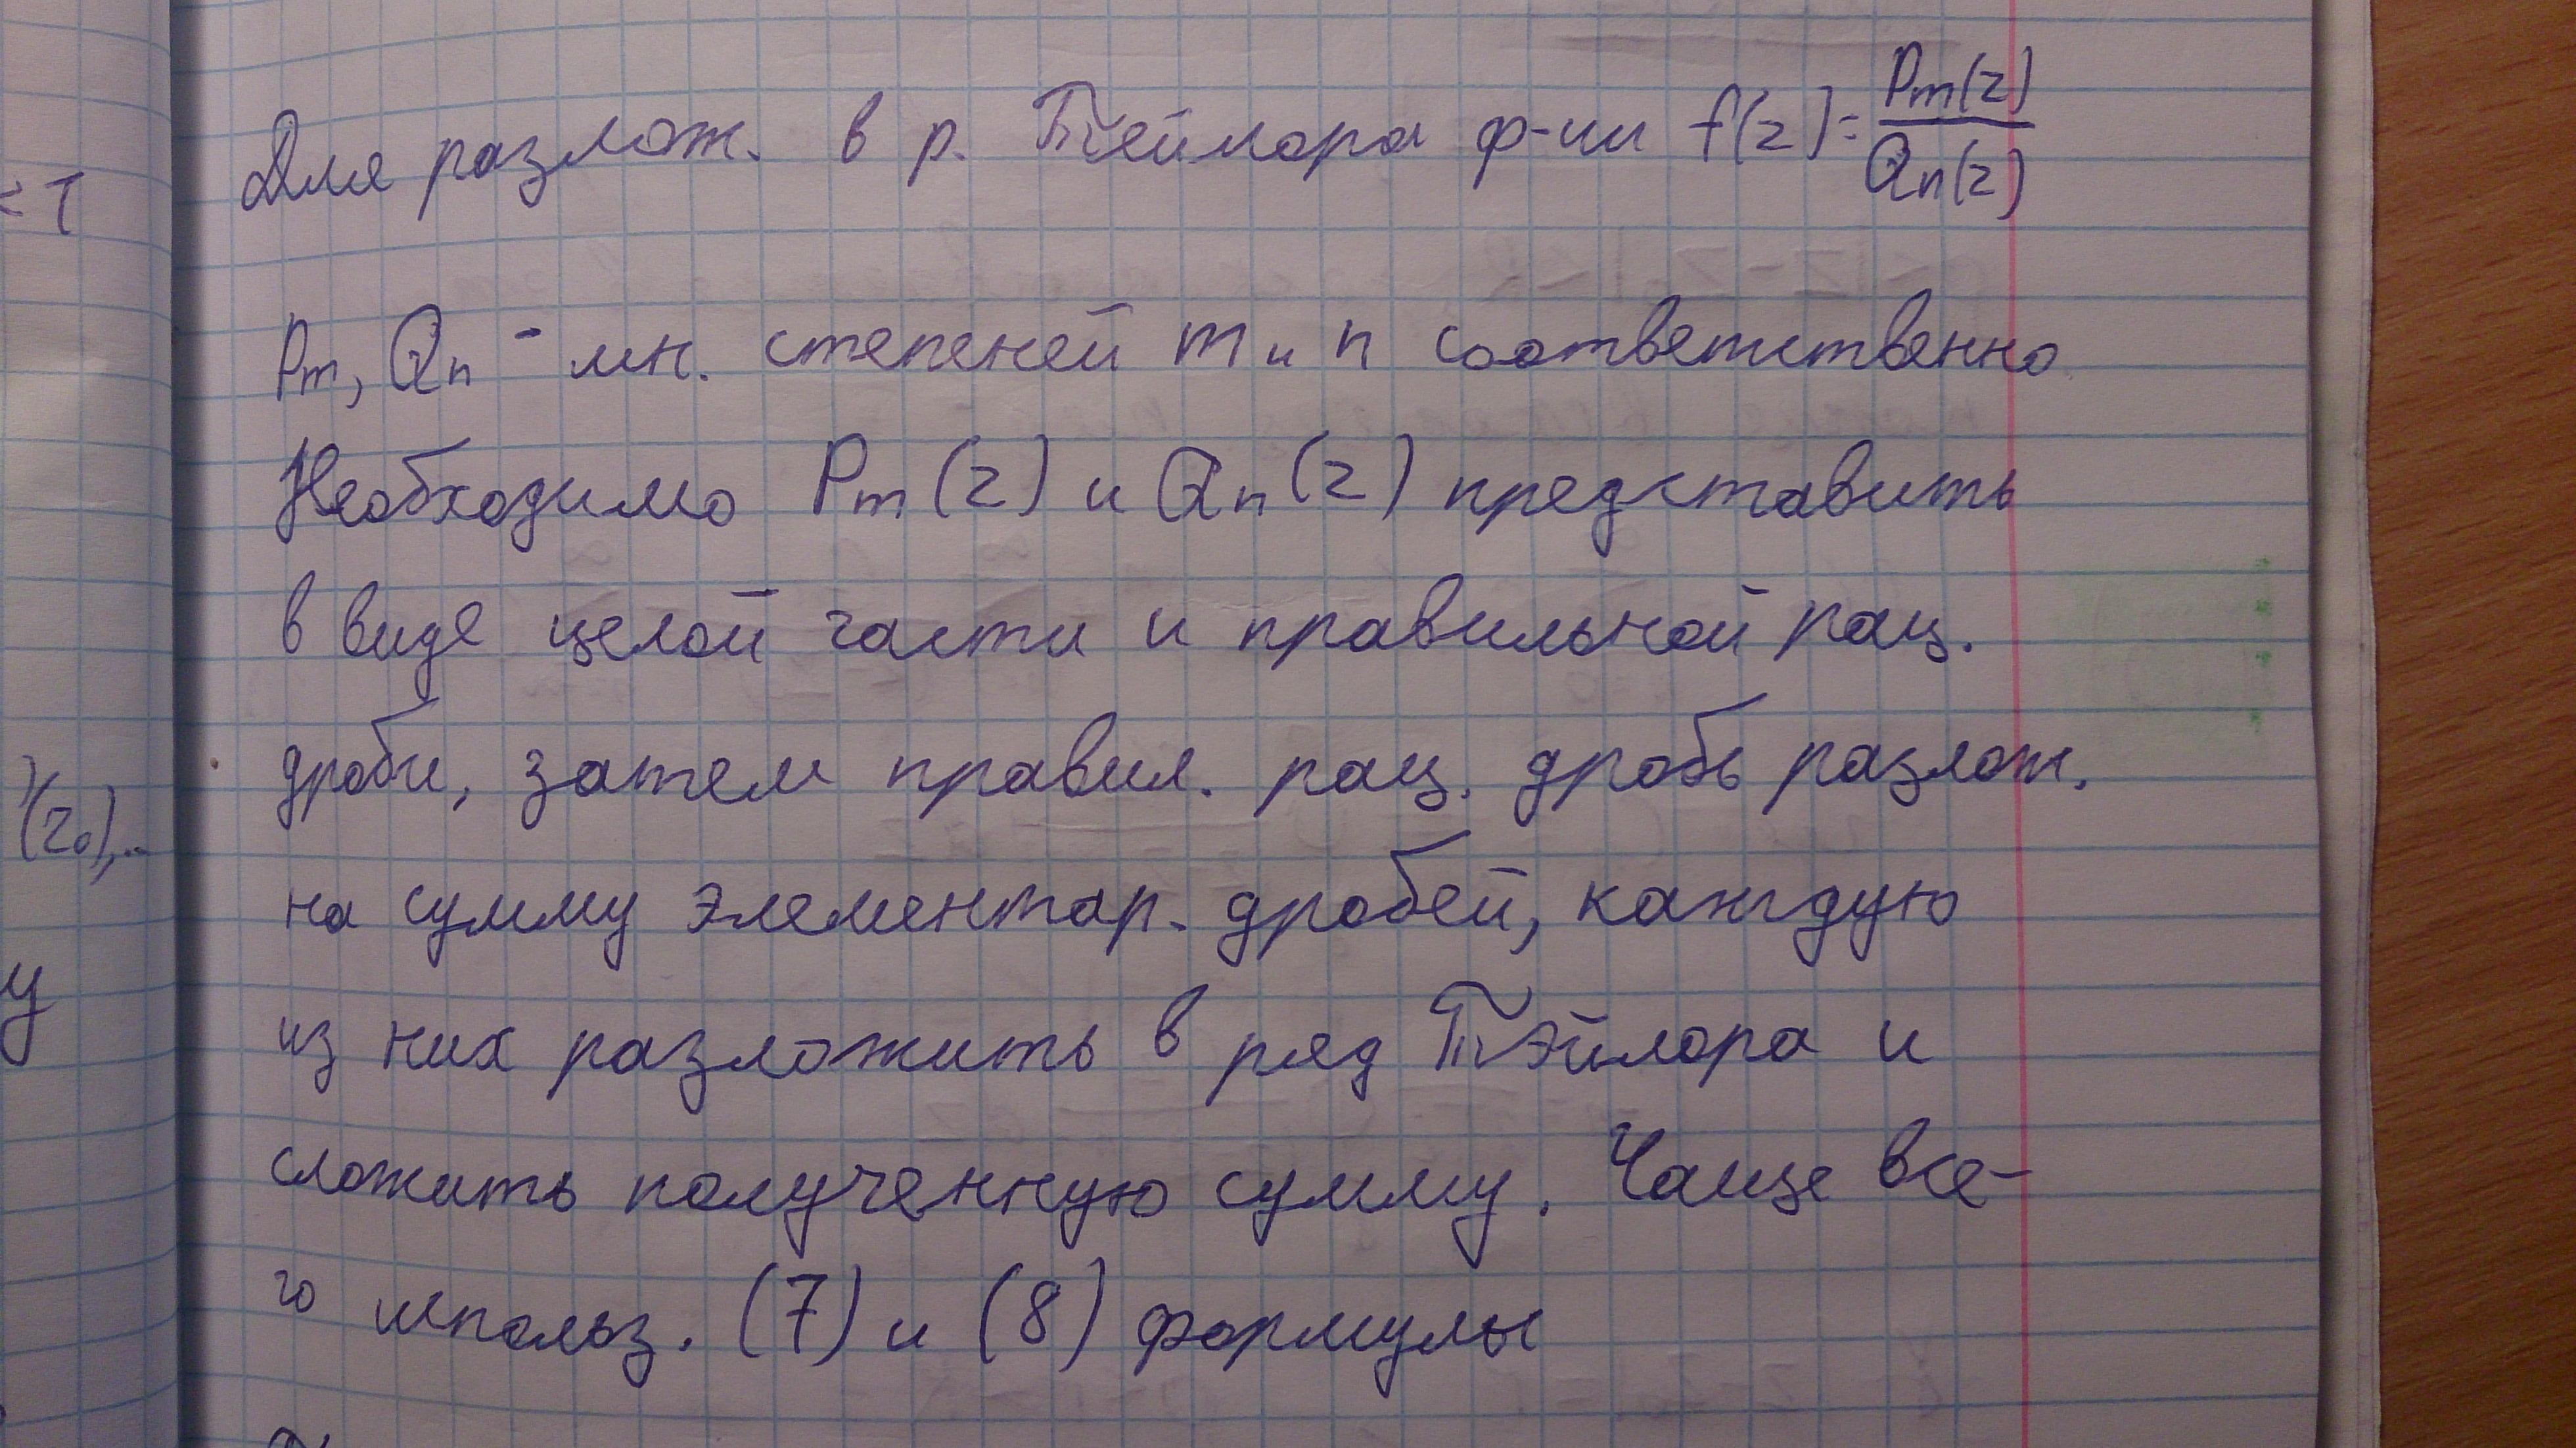 Для разлож. в р. Тейлора ф-ии f(z)=Pm(z)/Qn(z)
Pm, Qn - мн. степеней m и n соответственно
Необходимо Pm(z) и Qn(z) представить
в виде целой части и правильной рац.
дроби, затем правил. рац. дробь разлож.
на сумму элементар. дробей, каждую
из них разложить в ряд Тэйлора и
сложить полученную сумму. Чаще все-
го использ. (7) и (8) формулы
(z₀),..
у